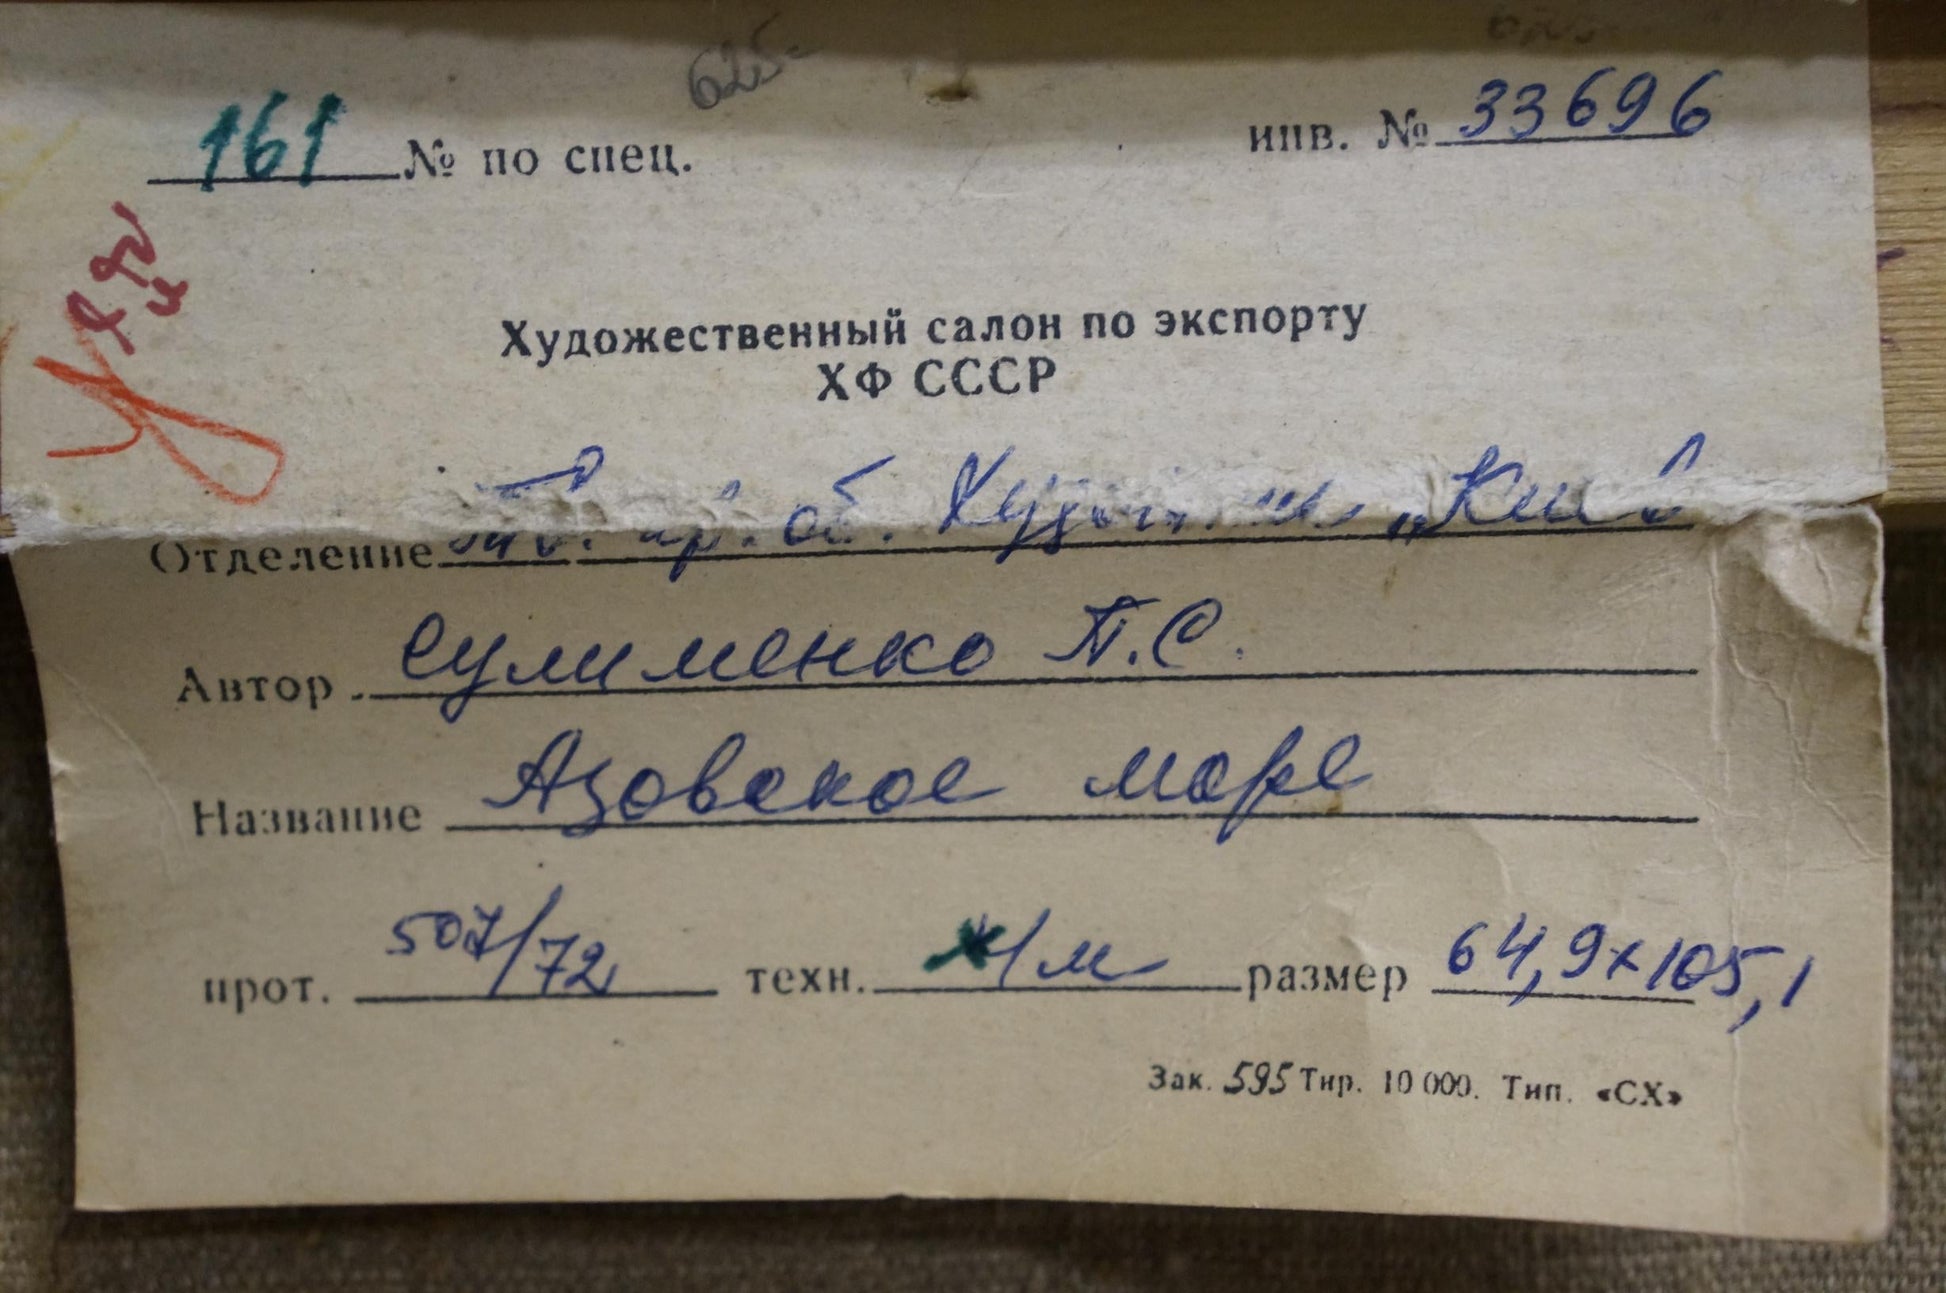 625-
161 № по спец. инв. № 33696
Художественный салон по экспорту
ХФ СССР
Отделение
Автор Сулименко П.С.
Название Азовское море
прот. 507/72 техн. х/м размер 64,9х105,1
Зак. 595 Тир. 10 000. Тип. «СХ»